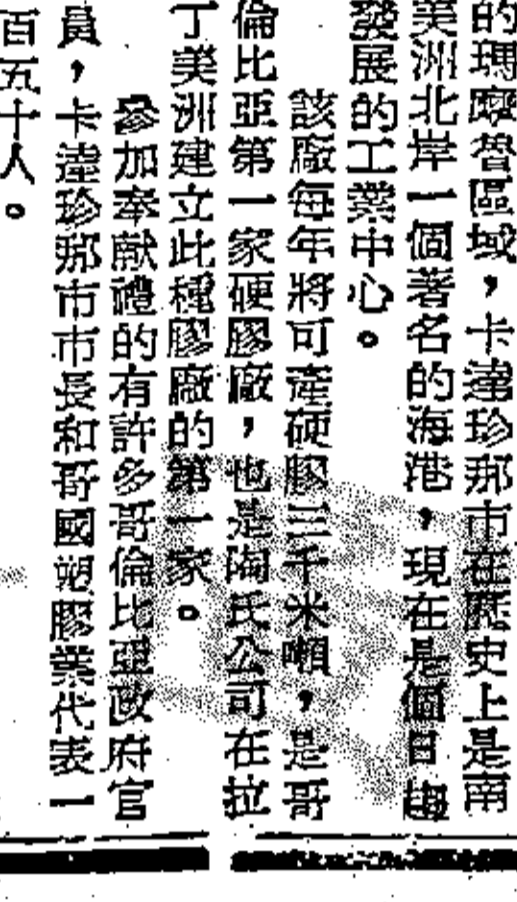 的瑪摩魯區域，卡達珍那市在歷史上是南
美洲北岸一個著名的海港，現在是個日趨
發展的工業中心。
該廠每年將可產硬膠三千米噸，是哥
倫比亞第一家硬膠廠，也是陶氏公司在拉
丁美洲建立此種膠廠的第一家。
參加奉獻禮的有許多哥倫比亞政府官
員，卡達珍那市市長和哥國塑膠業代表一
百五十人。